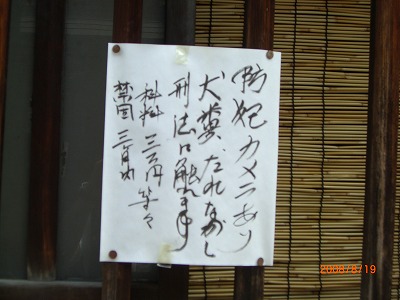 防犯カメラあり
犬糞だれながし
刑法に触れます
科料 三万円 等々
禁固 三ヶ月内
2008/8/19